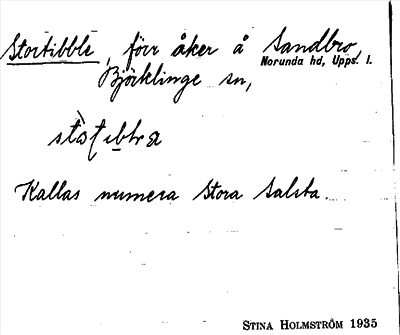 Stortibble, förr åker å Sandbro,
Norunda hd, Upps. l.
Björklinge sn,
Kallas numera Stora Salsta.
STINA HOLMSTRÖM 1935